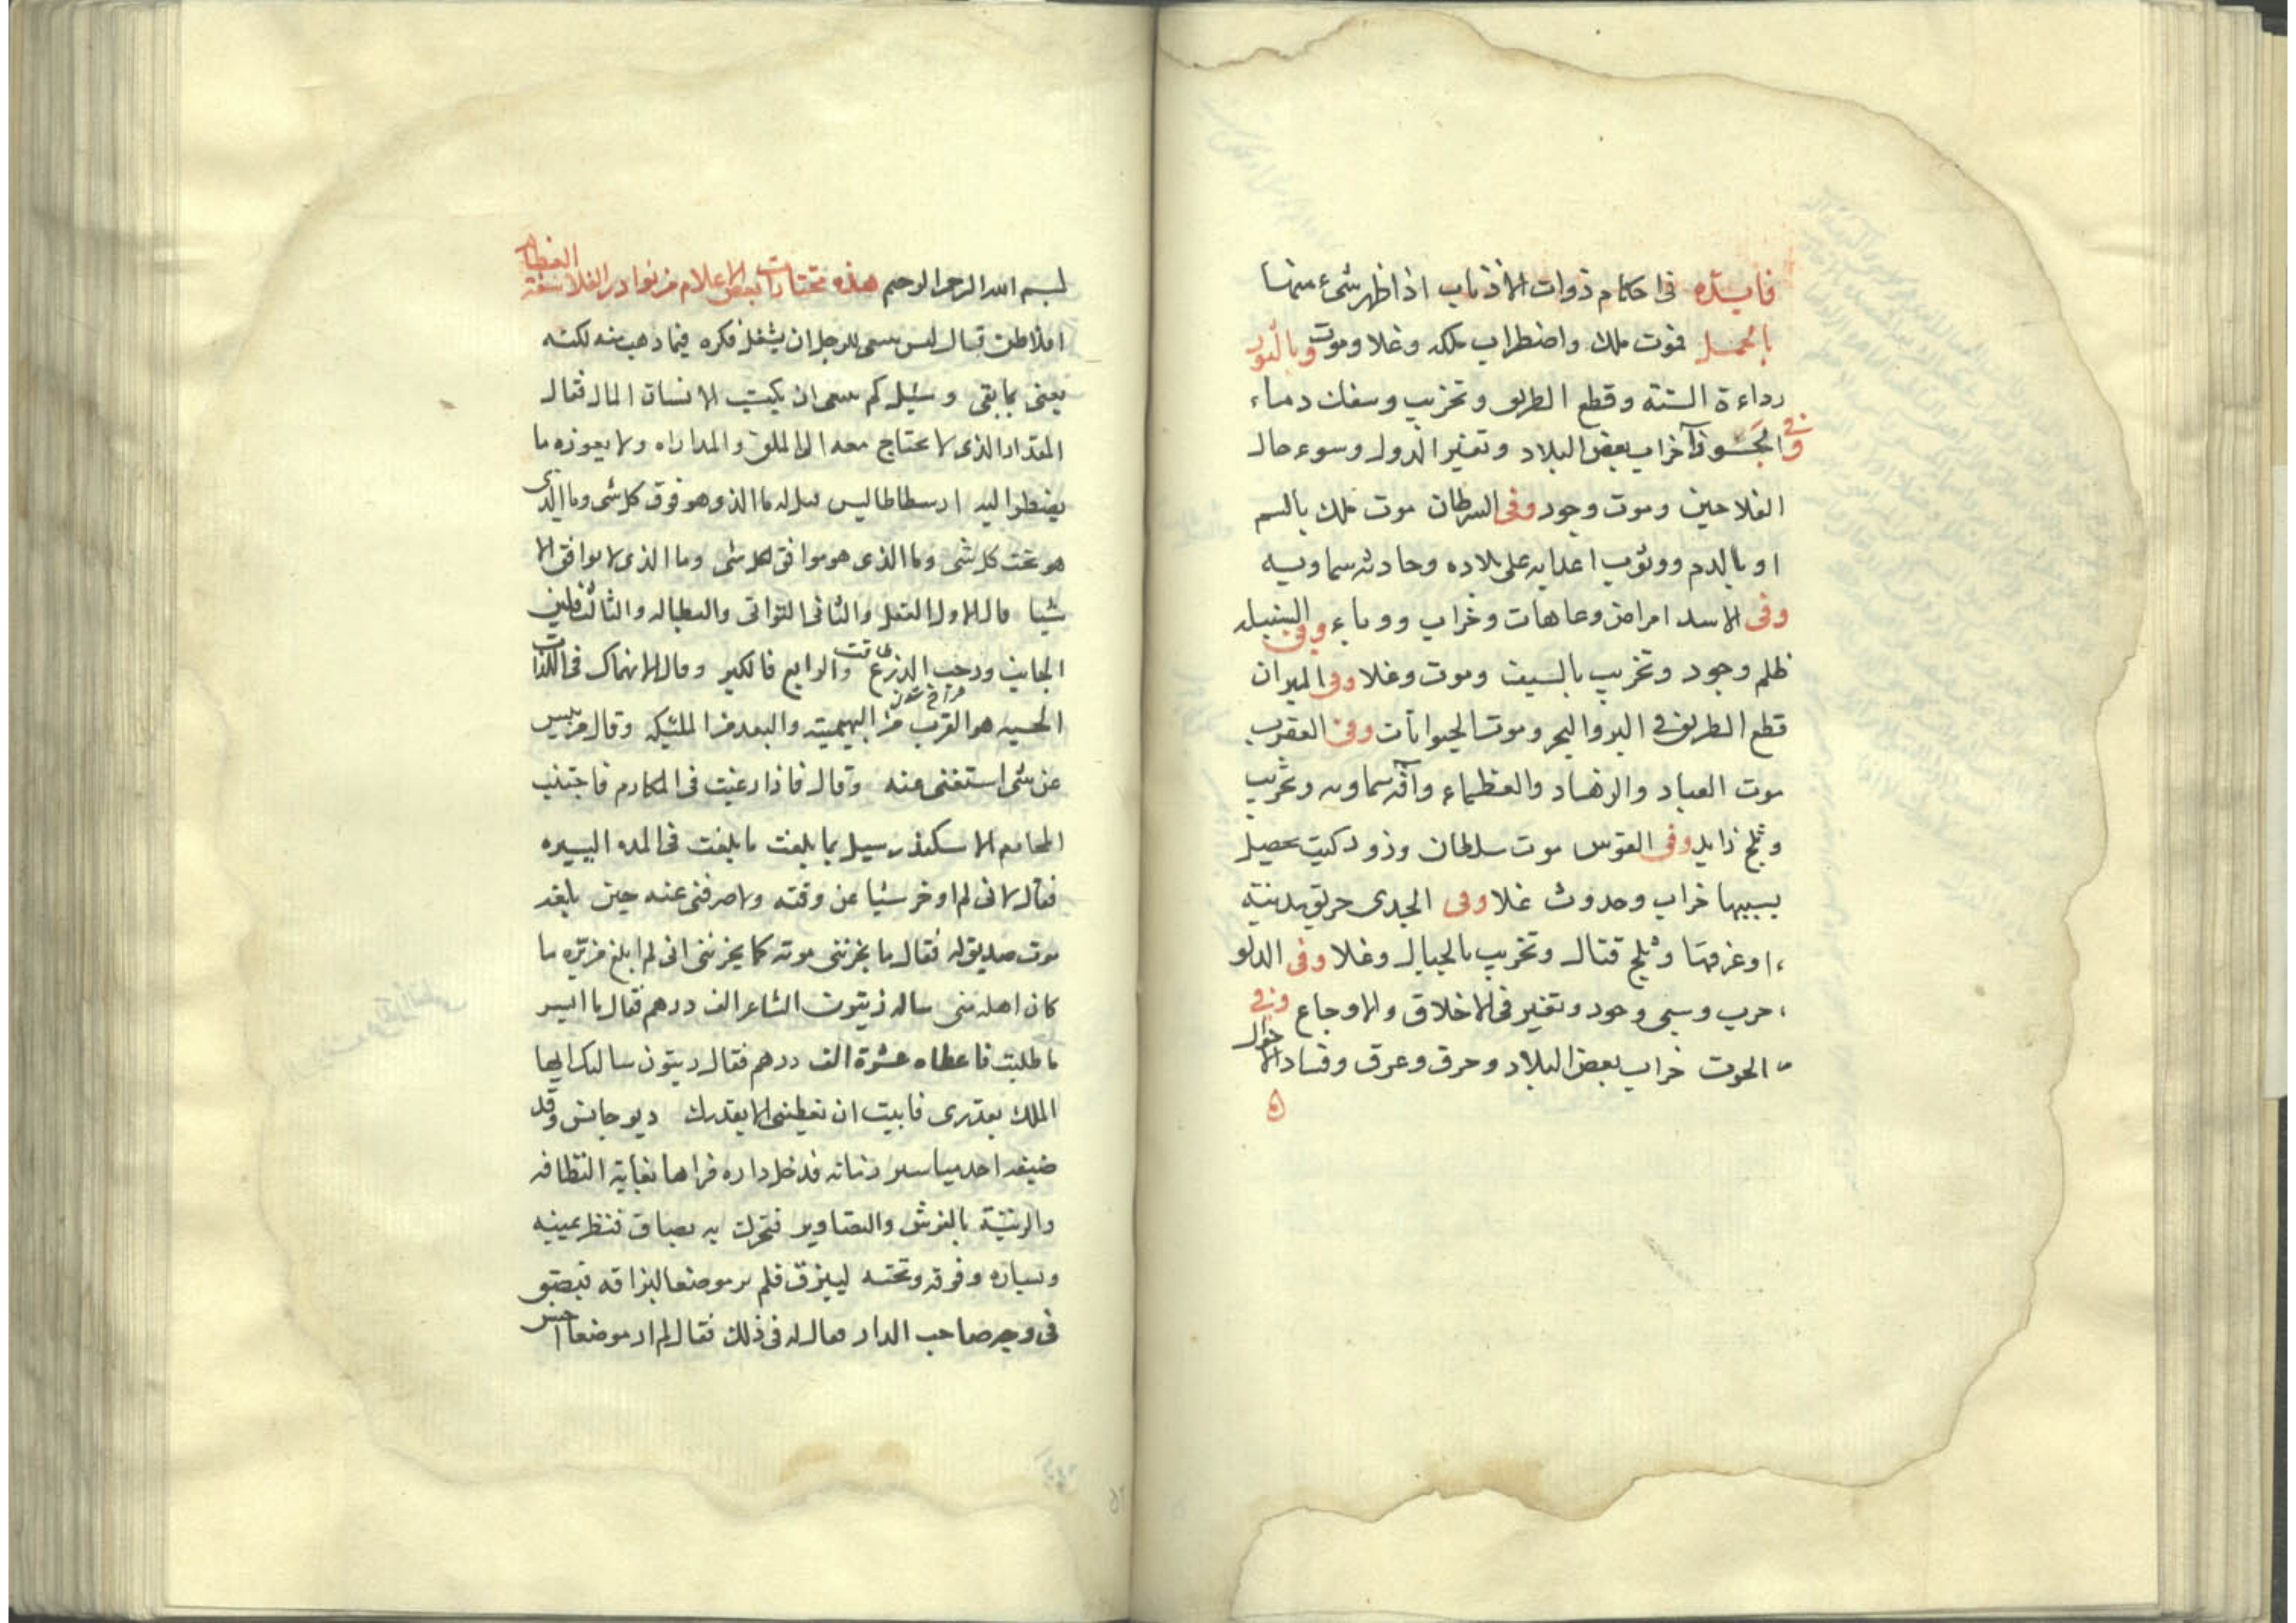 فايدة في احكام ذوات الاذناب اذا ظهر شىء منها
بالحمل فوت ملك واضطراب ملكه وغلا وموت وبالثور
رداءة السنة وقطع الطريق وتخريب وسفك دماء
وفي الجوزآ خراب بعض البلاد وتغير الدول وسوء حال
الفلاحين وموت وجور وفى السرطان موت ملك بالسم
او بالدم ووثوب اعدايه على بلاده وحادثه سماويه
وفى الاسد امراض وعاهات وخراب ووباء وفى السنبله
ظلم وجور وتخريب بالسيف وموت وغلا وفى الميزان
قطع الطريق في البر والبحر وموت الحيوانات وفى العقرب
موت العباد والزهاد والعظماء وآفه سماويه وتخريب
وثلج زايد وفى القوس موت سلطان وزوكيت يحصل
بسببها خراب وحدوث غلا وفى الجدى حريق مدينة
او غرقها وثلج قتال وتخريب بالجبال وغلا وفى الدلو
حرب وسبى وجور وتغير فى الاخلاق والاوجاع وفي
الحوت خراب بعض البلاد وحرق وغرق وفساد الاحوال
بسم الله الرحمن الرحيم هذه مختارات بعض الاعلام من نوادر الفلاسفة العظام
افلاطن قال ليس ينبغى للرجل ان يشغل فكره فيما ذهب منه لكنه
يعنى بما بقى وسئل كم ينبغى ان يكتسب الانسان المال فقال
المقدار الذى لا يحتاج معه الى الملق والمداراه ولا يعوزه ما
يضطر اليه ارسطاطاليس سئل ما الذى هو فوق كل شى وما الذى
هو تحت كل شى وما الذى هو موافق لكل شى وما الذى لا يوافق الا
شيا قال الاول العقل والثانى التوانى والبطاله والثالث فلين
الجانب ورحب الذرع والرابع فالكبر وقال الانهماك فى اللذات
الحسيه هو القرب من البهيمية والبعد من الملئيكه وقال من يئس
عن شى استغنى عنه وقال فاذا رغبت فى المكارم فاجتنب
المحارم الاسكندر سيل بما بلغت ما بلغت فى المده اليسيره
فقال لانى لم اوخر شيا عن وقته ولا صرفنى عنه حين بلغه
موت صديق له فقال ما يحزننى موته كما يحزننى انى لم ابلغ من بره ما
كان اهله منى ساله زيتون الشاعر الف درهم فقال ما ايسر
ما طلبت فاعطاه عشرة الف درهم فقال زيتون سالتك ايها
الملك بقدرى فابيت ان تعطينى الا بقدرك ديوجانس وقد
ضيفه احد مياسير زمانه فدخل داره فراها بغاية النظافه
والزينة بالفرش والتصاوير فتحرك به بصاق فنظر يمينه
ويساره وفوقه وتحته ليبزق فلم ير موضعا لبزاقه فبصق
فى وجه صاحب الدار فقال له فى ذلك فقال لم ار موضعا اخس